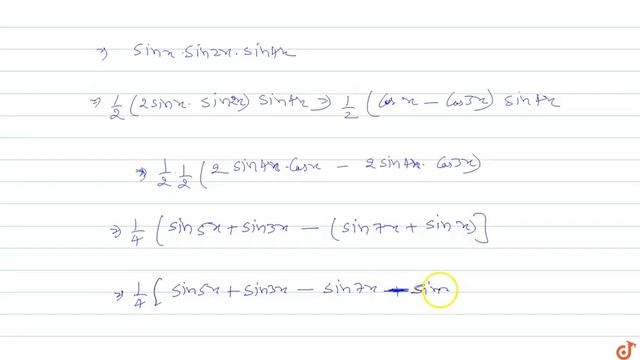 ⇒ sinx · sin2x · sin4x
⇒ 1/2 (2sinx · sin2x) sin4x ⇒ 1/2 (cosx − cos3x) sin4x
⇒ 1/2 1/2 (2 sin4x · cosx − 2sin4x · cos3x)
⇒ 1/4 (sin5x + sin3x − (sin7x + sinx)]
⇒ 1/4 [ sin5x + sin3x − sin7x − sinx
doubtnut